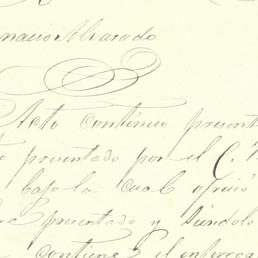 nacio Alvarado
Acto contínuo present
presentado por el C.
bajo la cual ofreció
presentado y siéndolo
contiene el interrog